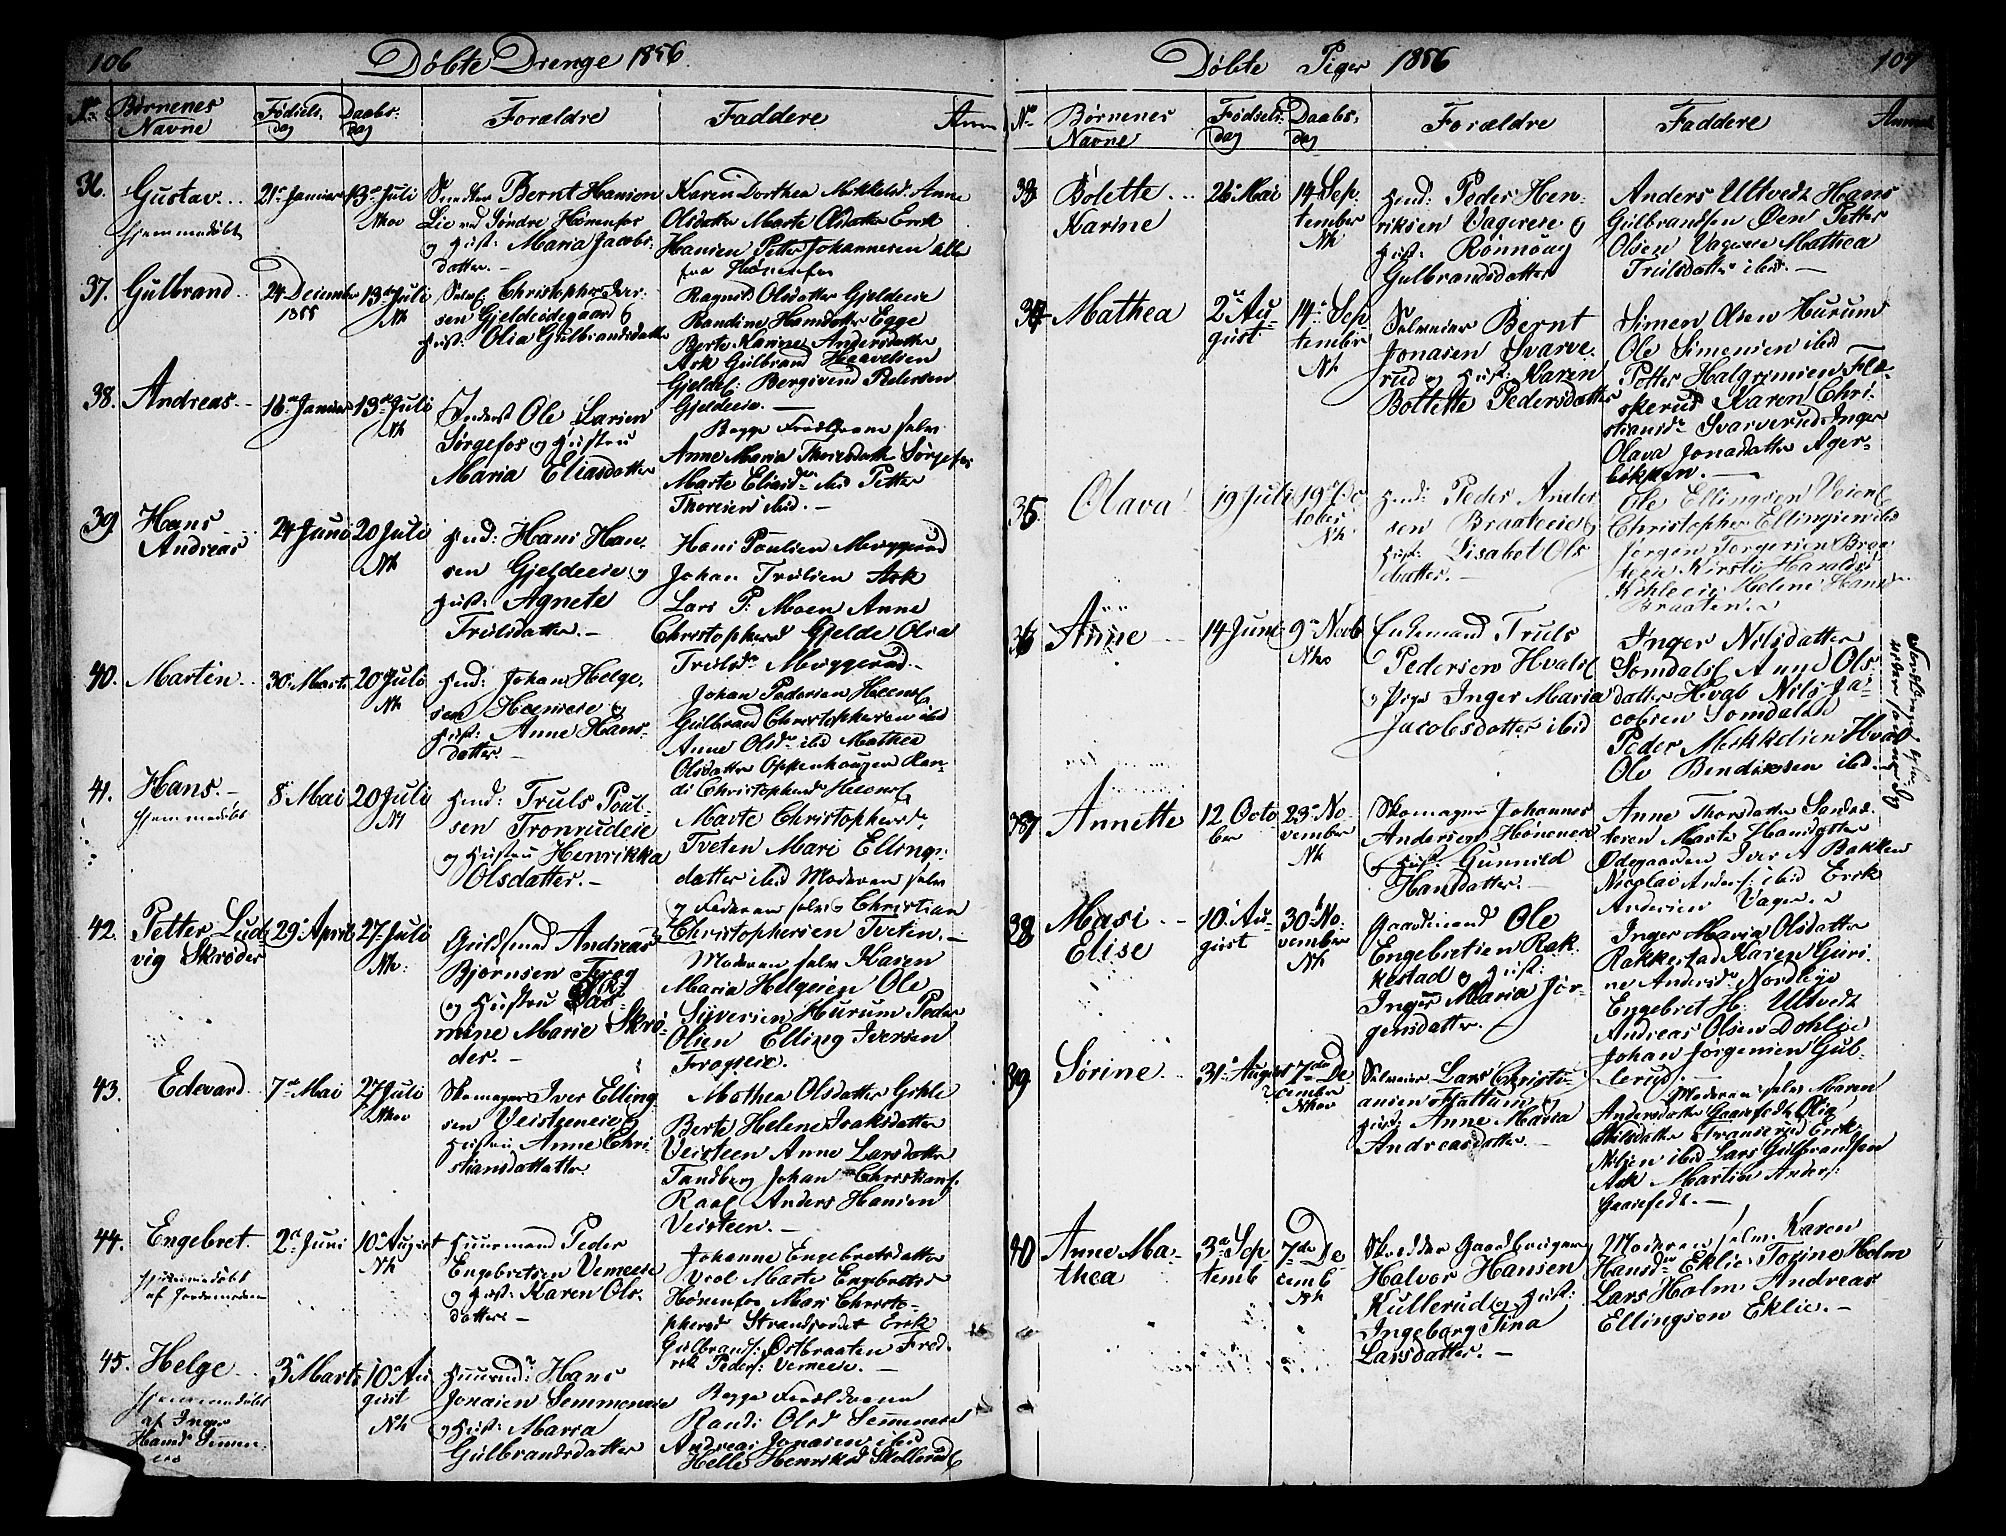 106
Døbte Drenge 1856
No Børnenes Navne
Fødsels dag
Daabs dag
Forældre
Faddere
Anm
36. Gustav
hjemmedøbt
21de Januar
13de Juli
Nkov
Bernt Hansen
Lie ved Søndre Hønenfos
og Hust: Maria Jacobs-
datter.-
Karen Dorthea Mikkelsd Anne
Olsdatter Marte Olsdatter Erik
Hansen Petter Johannesen alle
fra Hønenfos
37. Gulbrand
24 December
1855
13de Juli
Nk
Christopher Iver-
sen Gjeldeødegaard og
Hust: Olia Gulbrandsdatter
Ragnild Olsdatter Gjeldeeie
Randine Hansdatter Egge
Berte Karine Andersdatter
Ask Gulbrand Haavelsen
Gjelde: Bergsvend Pedersen
Gjeldeeie.-
38. Andreas
16de Januar
13de Juli
Nk
Inderst Ole Larsen
Sørgefos og Hustru
Maria Eliasdatter
Begge Forældrene selv
Anne Maria Thoresdatter Sørgefos
Marte Eliasdr ibid Petter
Thoresen ibid.-
39. Hans
Andreas
24 Juni
20 Juli
Nk
Huusd: Hans Han-
sen Gjeldeeie og
Hust: Agnete
Trulsdatter.-
Hans Poulsen Muggerud
Johan Trulsen Ask
Lars P: Moen Anne
Christophersd Gjelde Olia
Trulsdr Muggerud.-
40. Martin
30 Marts
20 Juli
Nk
Huusd: Johan Helge-
sen Heeneie og
Hust: Anne Hans-
datter.-
Johan Pedersen Heens
Gulbrand Christophersen ibid
Anne Olsdr ibid Mathea
Olsdatter Oppenhougen Ran-
di Christophersd Heens
41. Hans.-
hjemmedøbt
8 Mai
20 Juli
Nk
Huusd: Truls Poul-
sen Tronrudeie
og Hustru Henrikka
Olsdatter.-
Marte Christophersdr
Tveten Mari Ellings-
datter ibid Moderen selv
og Faderen selv og Christian
Christophersen Tveten.-
42. Petter Lud-
vig Skrøder
29de April
27 Juli
Nk:
Guldsmed Andreas
Bjørnsen Frog
og Hustru
mine Marie Skrø-
der.-
Moderen selv Karen
Maria Helgesen Ole
Syversen Hurum Peder
Olsen Elling Iversen
Frogseie.
43. Edevard
7de Mai
27 Juli
Nkov
Skomager Iver Elling
sen Veisteneie og
Hustru Anne Chri-
stiansdatter
Mathea Olsdatter Gihle
Berte Helene Isaksdatter
Veisteen Anne Larsdatter
Tandberg Johan Christians:
Raae Anders Hansen
Veisteen.-
44. Engebret
hjemmedøbt
af Jordemoderen
2de Juni
10de August
Nk
Huusmand Peder
Engebretsen Vemeeie
og Hust: Karen Ols-
datter-
Johanne Engebretsdatter
Marte Engebretsd
Hønenfos Mari Christo-
phersd Strandjordet Erik
Gulbrands: Østbraaten Fred-
rik Peders: Vemeeie.-
45. Helge
hjemmedøbt
af Inger
Hansd Semmen-
eie
3de Marts
10de Au
gust
Nk
Huusd: Hans
Jonasen Semmeneie
og Hust: Maria
Gulbrandsdatter
Begge Forældrene
Randi Olsd Semmeneie
Andreas Jonasen ibid
Helle Henriksd Skollerud
Døbte Piger 1856
107
No
Børnenes Navne
Fødsels dag
Daabs dag
Forældre
Faddere
Anmærk
33 Bolette
Karine
26de Mai
14 Sep-
tember
Nk
Huusd: Peder Hen-
riksen Vagereie og
Hust: Rønnaug
Gulbrandsdatter
Anders Ultvedt Hans
Gulbrandsen Øen Petter
Olsen Vagereie Mathea
Trulsdatter ibid.-
34 Mathea
2de Au-
gust
14de Sep
tember
Nk
Selveier Bernt
Jonasen Svarve-
rud og Hust: Karen
Bolette Pedersdatter
Simen Olsen Hurum
Ole Simensen ibid
Petter Halgrimsen Flæ-
skerud Karen Chri-
stiansdr Svarverud Inger
Olava Jonasdatter Ager-
bekken.-
35. Olava
19 Juli
19de Oc
tober
Nk
Huusd: Peder Ander
sen Braateeie og
Hust: Lisabet Ols
datter.-
Ole Ellingsen Veien
Christopher Ellingsen ibid
Jørgen Torgersen Braa-
teeie Kirsti Haralds
Kihleeie Helene Hans
Braaten.
36 Anne
14 Juni
9de Novb
Nkov
Enkemand Truls
Pedersen Hvals
og Pige Inger Maria
Jacobsdatter ibid
Inger Nilsdatter
Somdals Anne Ols
datter Hval Nils Ja-
cobsen Somdalen
Peder Mikkelsen Hval
Ole Bendixsen ibid.-
37 Annette
12 Octo
ber
23de No-
vember
Nk
Skomager Johannes
Andersen Hønen
og Hust: Gunnild
Hansdatter.-
Anne Thorsdatter Sandsæ-
teren Marte Hansdatter
Ødegaarden Iver A Bakken
Nicolai Anders: ibid Erik
Andersen Vager.
38 Masi
Elise
10de Au-
gust
30de No-
vember
Nk
Gaardmand Ole
Engebretsen Rak-
kestad og Hust:
Inger Maria Jør-
gensdatter.
Inger Maria Olsdatter
Rakkestad Karen Guri-
ne Andersdr Nordbye
Engebret H: Ultvedt
Andreas Olsen Dohlpe
Johan Jørgensen Gul-
lerud.-
39 Sørine
31de August
7de De
cember
Nkov
Selveier Lars Christi-
ansen Hattum og
Hust: Anne Maria
Andreasdatter.-
Moderen selv Maren
Andersdatter Gaarsfedt Olia
Nilsdatter Tranerud Erik
Nilsen ibid Lars Gulbrandsen
Ask Martin Anders:
Gaarsfedt.-
40 Anne Ma-
thea
3de Sep
temb
7de De
cemb
Nk
Skrædder Gaardbruger
Halvor Hansen
Kullerud og Hust:
Ingeborg Tina
Larsdatter.-
Moderen selv Karen
Hansdr Eklie Torine Holm
Lars Holm Andreas
Ellingsen Eklie.-